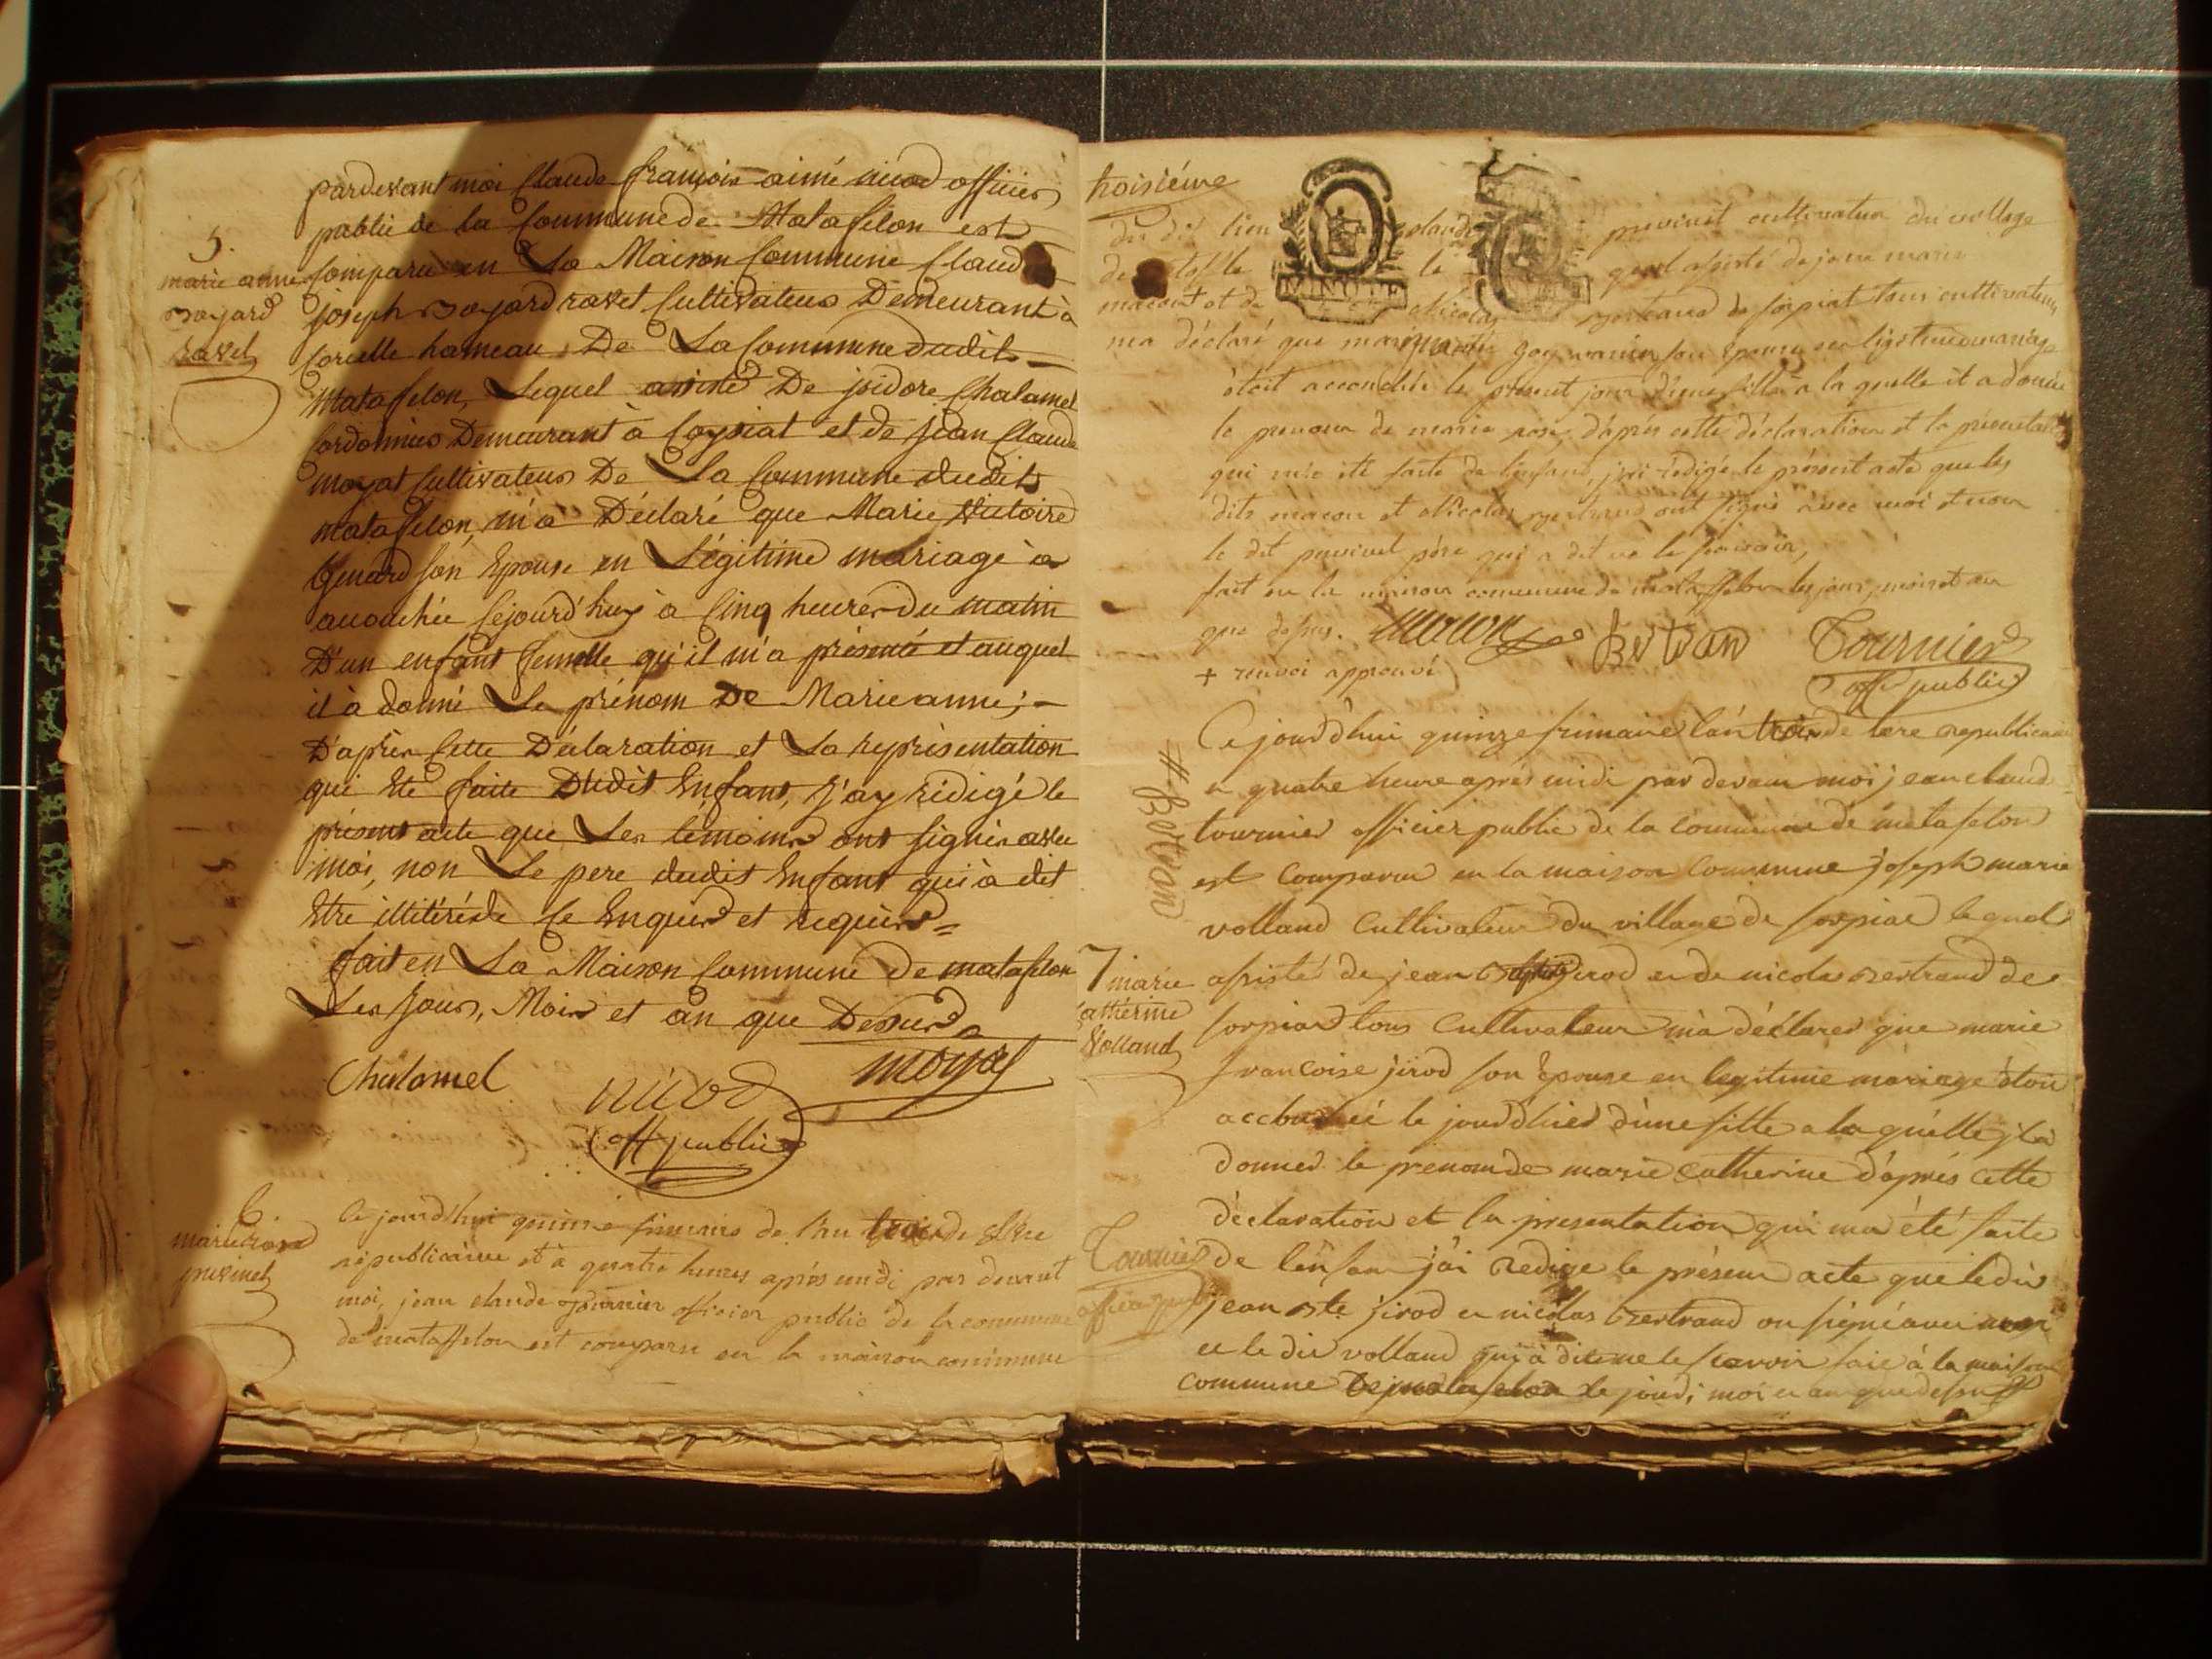 pardevant moi Claude françois aimé nicod officier
public de la Commune de Matafelon est
5.
marie anne
Bojard
ravet
Comparu en La Maison Commune Claude
joseph Bojard ravet Cultivateur Demeurant à
Corcelle hameau De La Commune dudit
Matafelon, Lequel assisté De jsidore Chalamel
Cordonnier Demeurant à Coysiat et de Jean Claude
moyat Cultivateur De La Commune dudit
matafelon, m'a Déclaré que Marie Victoire
Genard son Epouse en Légitime mariage à
accouchée Cejourd'huy à Cinq heures du matin
D'un enfant femelle qu'il m'a présenté et auquel
il à donné Le prénom De Marie anne;
D'après Cette Déclaration et La représentation
qui Eté faite Dudit Enfant, J'ay rédigé le
présent acte que Les témoins ont signés avec
moi, non Le pere dudit Enfant qui à dit
Etre illitéré de Ce Enquis et requis =
fait en La Maison Commune de matafelon
Les Jour, Mois et an que Dessus
Chalamel
nicod
moyat
off public
6.
marie rose
privinet
Ce jourd'hui quinze frimaire de l'an trois de l'Ere
républicaine et à quatre heures après midi par devant
moi, jean claude tournier officier public de la commune
de mataffelon est comparu en la maison commune
troisiéme
du dit lieu claude privinet cultivateur du village
de le quel assisté de jose marie
macont et de Nicolas Bertrand de sorpiat tous cultivateurs
ma déclaré que marguerite son épouse en légitime mariage
étoit accouchée le présent jour d'une fille à la quelle il a donné
le prenom de marie rose, d'après cette déclaration et la présentation
qui m'a été faite de l'enfant, j'ai rédigé le présent acte que les
dits macon et Nicolas Bertrand ont signé avec moi et non
le dit privinet père qui a dit ne le savoir,
fait en la maison commune de mataffelon les jour, mois et an
que dessus. Macon Bertrand Tournier
+ renvoi approuvé off public
Ce jourd'hui quinze frimaire l'an trois de lere republicaine
a quatre heure aprés midi par devant moi jean claude
tournier officier public de la commune de matafelon
est Comparu en la maison Commune joseph marie
volland Cultivateur du village de sorpiat le quel
# Bertrand
7 marie
Catherine
Volland
assisté de jean jirod et de nicolas Bertrand de
sorpiat tous Cultivateur m'a déclarer que marie
francoise jirod son Epouse en legitime mariage étoit
accouchée le jour d'hier d'une fille a la quélle jl a
donner le prenom de marie Catherine d'aprés Cette
déclaration et la presentation qui ma été faite
Tournier
officier public
de l'enfant j'ai redige le présent acte que le dit
jean Bte jirod et nicollas Bertrand on signé avec moi
et le dit volland qui à dit ne le scavoir fait à la maison
commune De matafelon le jour, moi et an que dessus #
MINUTE